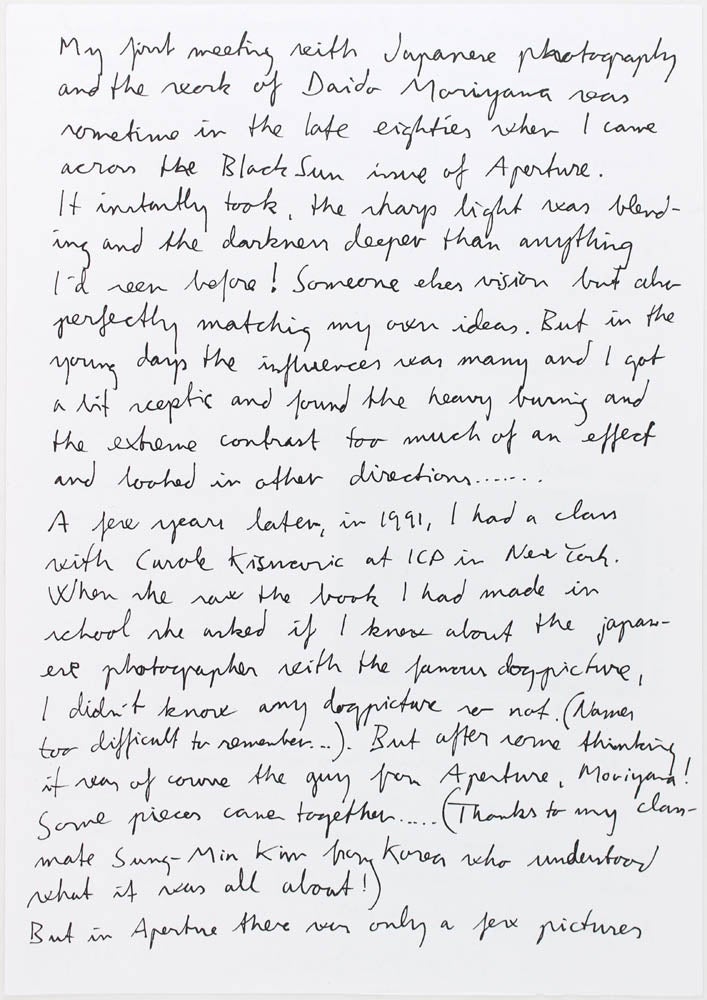 My first meeting with Japanese photography
and the work of Daido Moriyama was
sometime in the late eighties when I came
across the Black Sun issue of Aperture.
It instantly took, the sharp light was blend-
ing and the darkness deeper than anything
I'd seen before! Someone elses vision but also
perfectly matching my own ideas. But in the
young days the influences was many and I got
a bit sceptic and found the heavy burning and
the extreme contrast too much of an effect
and looked in other directions.......
A few years later, in 1991, I had a class
with Carole Kismaric at ICP in New York.
When she saw the book I had made in
school she asked if I knew about the japan-
ese photographer with the famous dogpicture,
I didn't know any dogpicture so not. (Names
too difficult to remember...). But after some thinking
it was of course the guy from Aperture, Moriyama!
Some pieces came together..... (Thanks to my class-
mate Sung-Min Kim from Korea who understood
what it was all about!)
But in Aperture there was only a few pictures